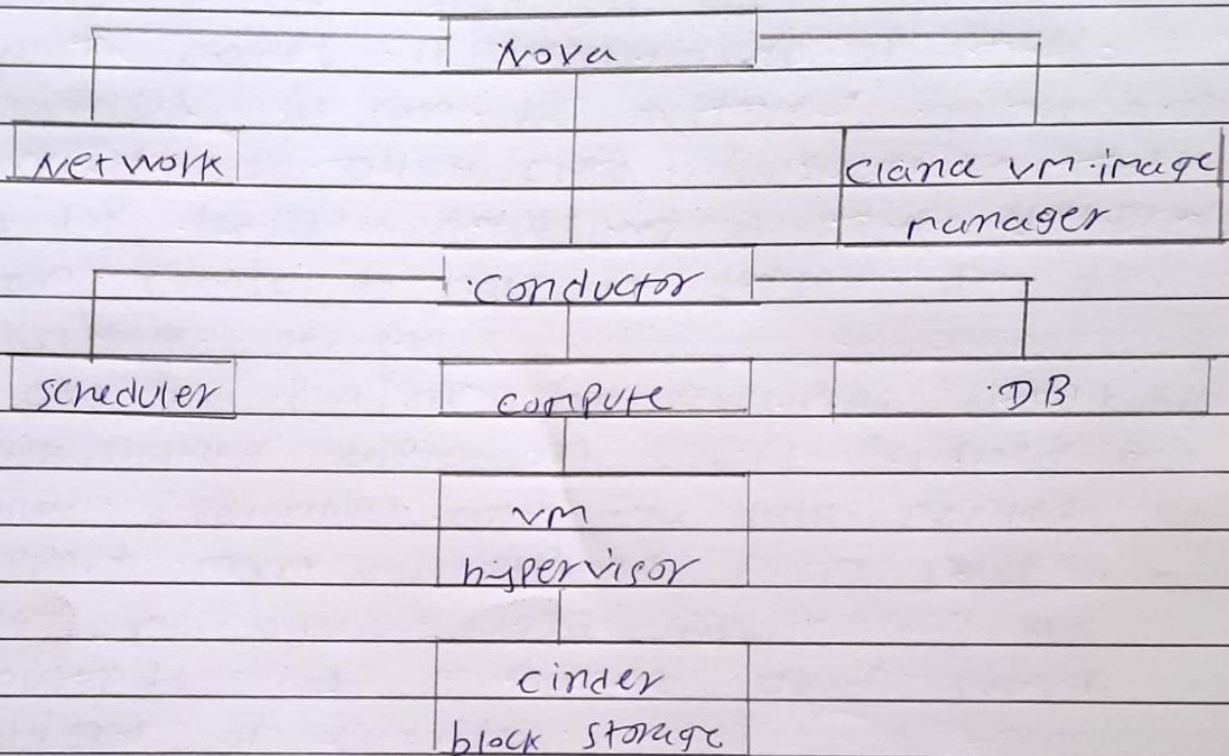 Nova
Network
Clana vm image
manager
Conductor
scheduler
compute
DB
vm
hypervisor
cinder
block storage